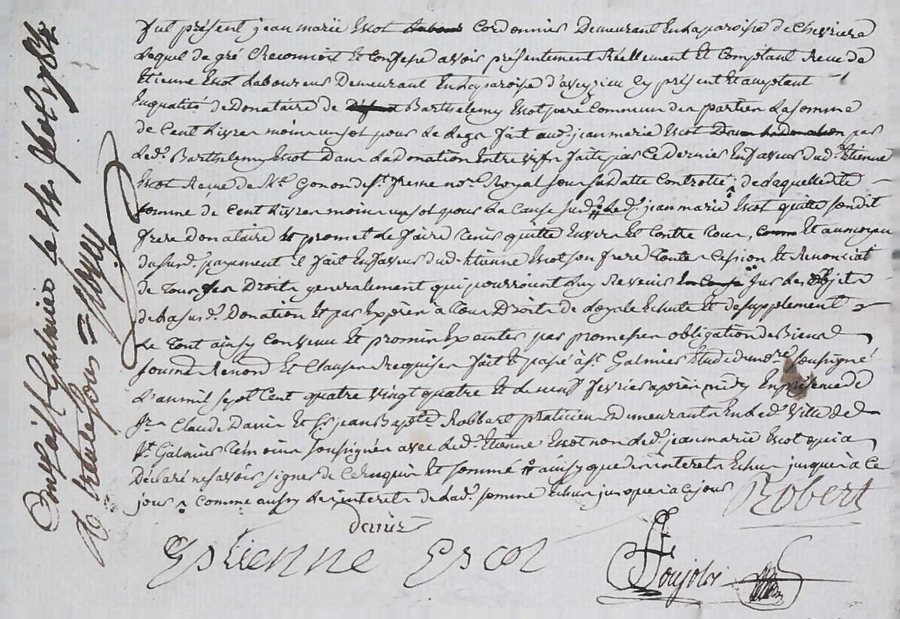 fut présent jean marie Escot cordonnier demeurant en la paroisse de chevrieres
lequel de gré a reconnu et confessé avoir présentement réellement et comptant reçu de
Etienne Escot laboureur demeurant en la paroisse d'aveyzieu cy présent et acceptant
en qualité de donataire de Barthelemy Escot pere commun des parties la somme
de cent livres moins un sol pour le legs fait aud. jean marie Escot par
led. Barthelemy Escot dans la donation entre vifs faite par ce dernier en faveur dud. Etienne
Escot reçue de Me Gonon de St. fresne nore. Royal sous sa datte controllé, de laquelle ditte
somme de cent livres moins un sol pour la cause susd. led. jean marie Escot quitte son dit
frere donataire et promet de faire tenir quitte envers et contre tous, et au moyen
du susd. payement il fait en faveur dud. Etienne Escot son frere toute cession et renonciat
de tous ses droits generalement qui pourroient luy revenir sur les objets
de la susd. donation et par exprès à tous droits de loyale echute et de supplement
le tout ainsy convenu et promis executer par promesses obligation de biens
soumo. renond. et clauses requises fait et passé à St. Galmier etude du nore. soussigné
l'an mil sept cent quatre vingt quatre et le neuf fevrier après midy en présence de
Sr. Claude Danis et Sr. jean Bapte. Robbert praticien demeurants en lad. ville de
St. Galmier témoins soussignés avec led. Etienne Escot non led. jean marie Escot qui a
déclaré ne savoir signer de ce requis et sommé ainsy que des interets echus jusques à ce
jour comme aussy des interets de lad. somme echus jusques à ce jour
Robert
danis
Estienne Escot
Poujolx
St Galmier le 14 1784